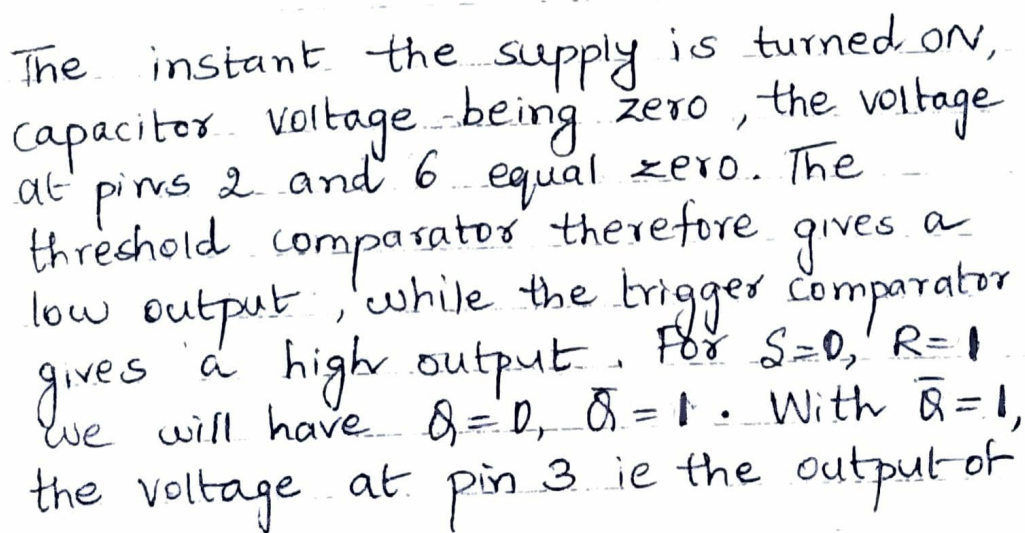 The instant the supply is turned ON,
capacitor voltage being zero, the voltage
at pins 2 and 6 equal zero. The
threshold comparator therefore gives a
low output, while the trigger comparator
gives a high output. For S=0, R=1
we will have Q=0, Q̅=1. With Q̅=1,
the voltage at pin 3 ie the output of